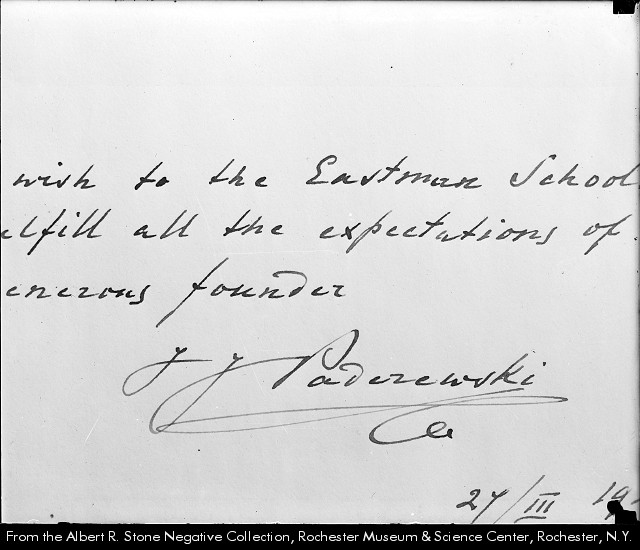 wish to the Eastman School
ulfill all the expectations of
enerous founder
J J Paderewski
27/III 19
From the Albert R. Stone Negative Collection, Rochester Museum & Science Center, Rochester, N.Y.